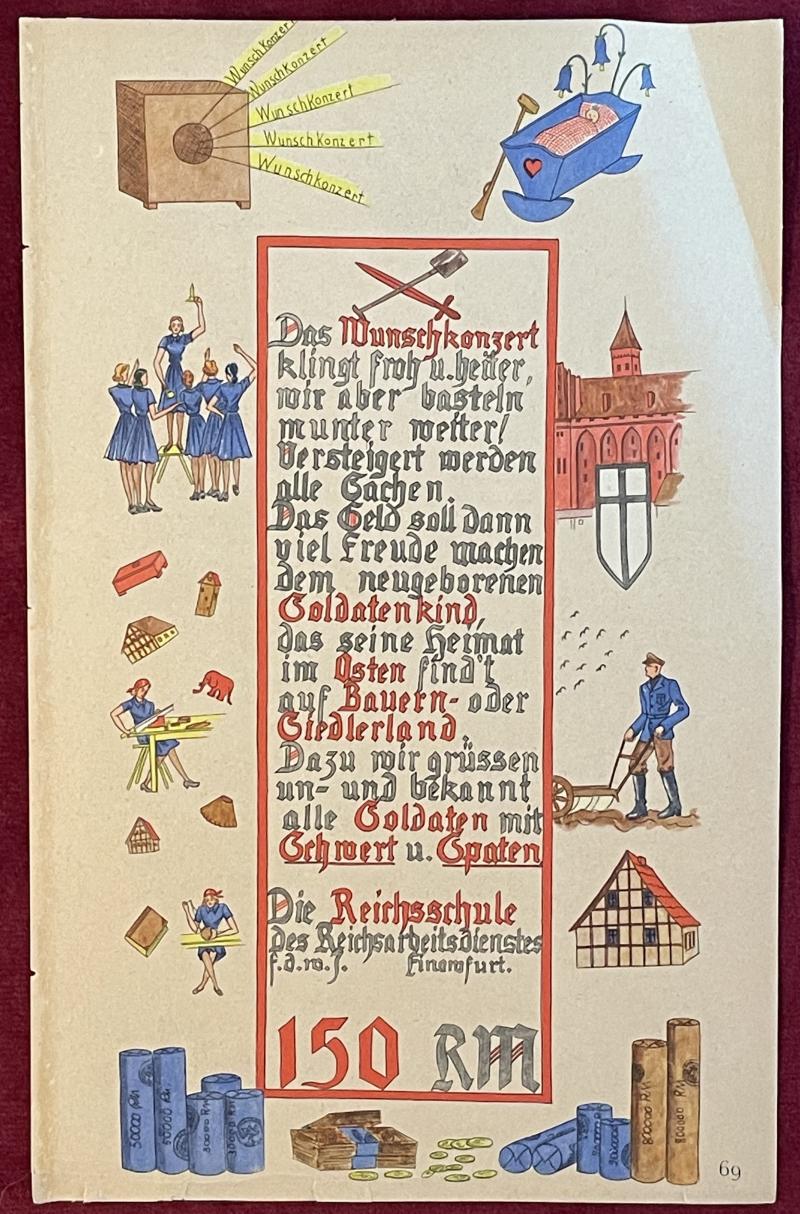 Wunschkonzert
Wunschkonzert
Wunschkonzert
Wunschkonzert
Wunschkonzert
Das Wunschkonzert
klingt froh u. heiter,
wir aber basteln
munter weiter!
Versteigert werden
alle Sachen.
Das Geld soll dann
viel Freude machen
dem neugeborenen
Soldatenkind,
das seine Heimat
im Osten find't
auf Bauern- oder
Siedlerland.
Dazu wir grüssen
un- und bekannt
alle Soldaten mit
Schwert u. Spaten
Die Reichsschule
des Reichsarbeitsdienstes
f.d.w.J. Finowfurt.
150 RM
50000 RM
69